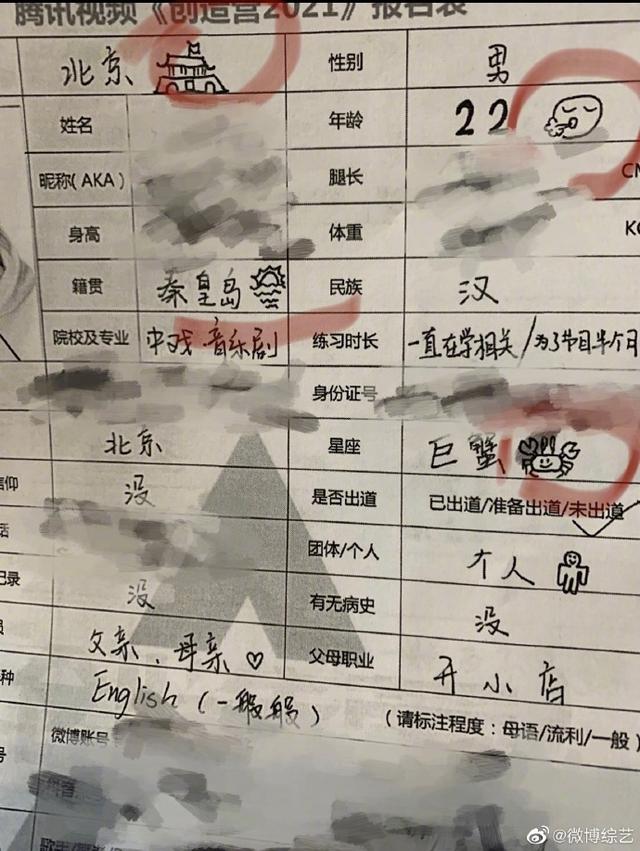 腾讯视频《创造营2021》报名表
北京 性别 男
姓名 年龄 22
昵称(AKA) 腿长 CM
身高 体重 KG
籍贯 秦皇岛 民族 汉
院校及专业 中戏 音乐剧 练习时长 一直在学相关/为了节目半个月
身份证号
北京 星座 巨蟹
信仰 没 是否出道 已出道/准备出道/未出道
话 团体/个人 个人
记录 没 有无病史 没
员 父亲、母亲♡ 父母职业 开小店
种 English(一般般) (请标注程度:母语/流利/一般)
号 微博账号
@微博综艺